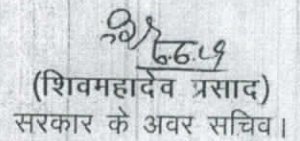 (शिवमहादेव प्रसाद)
सरकार के अवर सचिव।